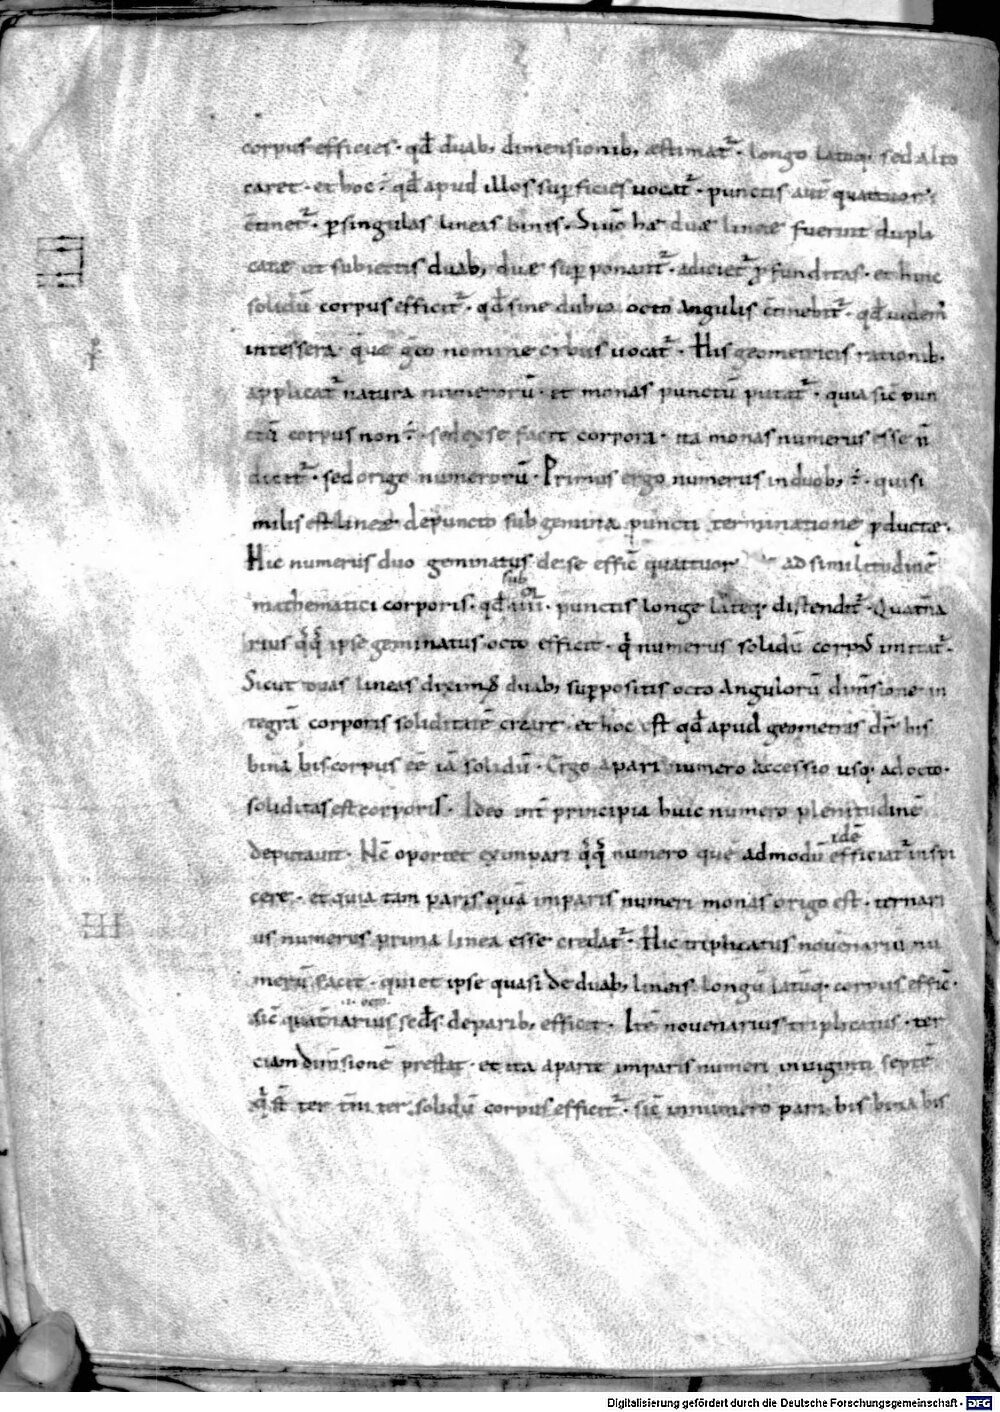 corpus efficies · qđ duab; dimensionib; æstimat᷑ · longo latoq; sed alto
caret · et hoc ·᷑ qđ apud illos sup̄ficies uocat᷑ · punctis aut̄ quattuor
c̄tinet᷑ · p̱ singulas lineas binis · Si uō hæ duæ lineæ fuerint dupli
catæ ut subiectis duab; duæ sup̄ponant᷑ · adiciet᷑ ꝓfunditas · et hinc
solidū corpus efficit᷑ · qđ sine dubio octo angulis c̄tinebit᷑ · qđ uidem᷒
in tessera · quę gͨco nomine cibus uocat᷑ · His geometricis rationib;
applicat᷑ natura numerorū · et monas punctū putat᷑ · quia sic̄ pun
ctū corpus non ·᷑· sed ex se facit corpora · ita monas numerus esse ñ
dicit᷑ · sed origo numerorū · Primus ergo numerus in duob; ·᷑· qui si
milis est lineæ de puncto sub gemina puncti terminatione ꝓductæ ·
Hic numerus duo geminatus de se effic̄ quattuor ad similitudinē
sub
mathematici corporis · qđ iiii᷑ᵒʳ · punctis longe lateq; distendit᷑ · Quat̄na
rius qͥqͣ ipse geminatus octo efficit · qͥ numerus solidū corpꝰ imitat᷑ ·
Sicut duas lineas diximꝰ duab; suppositis octo angulorū dim̄sione in
tegrā corporis soliditatē creare · et hoc est qđ apud geometras dr̄ bis
bina bis corpus eē iā solidū · Ergo a pari numero accessio usq; ad octo ·
soliditas est corporis · Ideo int̄ principia huic numero plenitudinē
idē
deputauit · Nc̄ oportet ex impari qͥqͣ numero quē admodū efficiat᷑ inspi
cere · et quia tam paris quā imparis numeri monas origo est · ternari
us numerus prima linea esse credat᷑ · Hic triplicatus nouenariū nu
merū facit · qui et ipse quasi de duab; lineis longū latūq; corpus effic̄ ·
octo
sic̄ quat̄narius sedˢ de parib; efficit · Itē nouenarius triplicatus · ter
ciam dim̄sionē prestat · et ita a parte imparis numeri in uiginti septē
qͥ st̄ ter t̄na ter solidū corpus efficit᷑ · sic̄ in numero pari bis bina bis
Digitalisierung gefördert durch die Deutsche Forschungsgemeinschaft - DFG